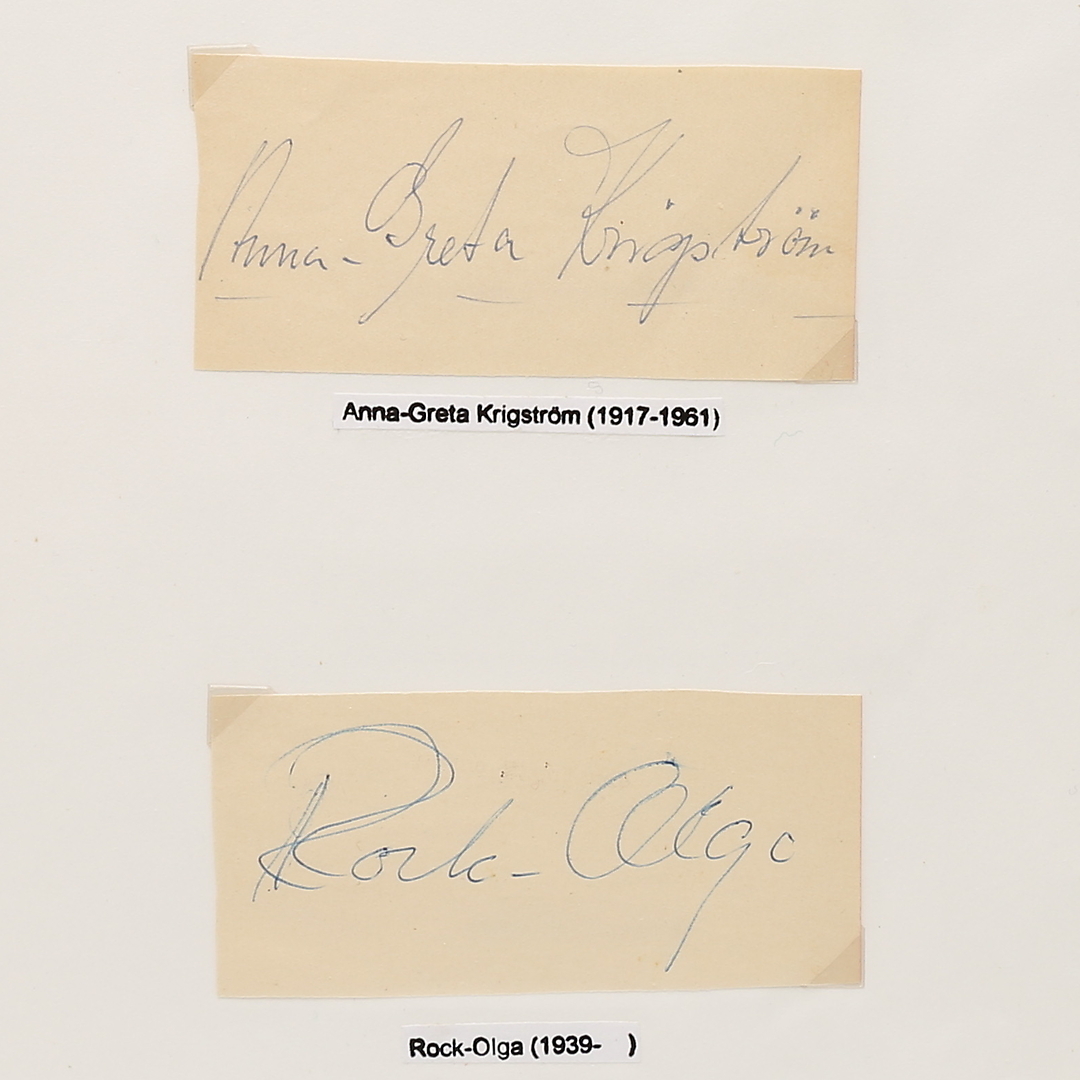 Anna-Greta Krigström
Anna-Greta Krigström (1917-1961)
Rock-Olga
Rock-Olga (1939- )